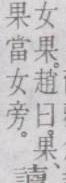 女果。趙曰。果、
果當女旁。